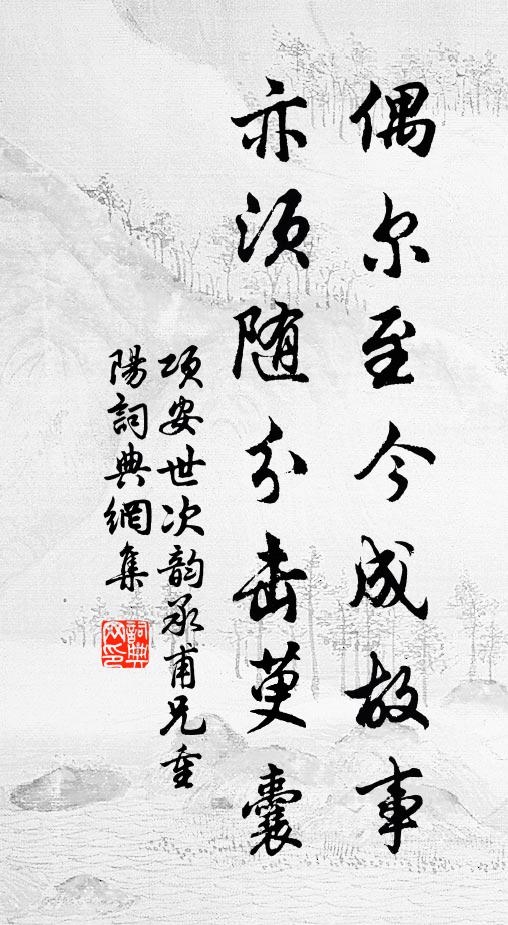 偶尔至今成故事
亦须随分击萸囊
项安世次韵承甫兄重
陽詞典網集
詞典网印